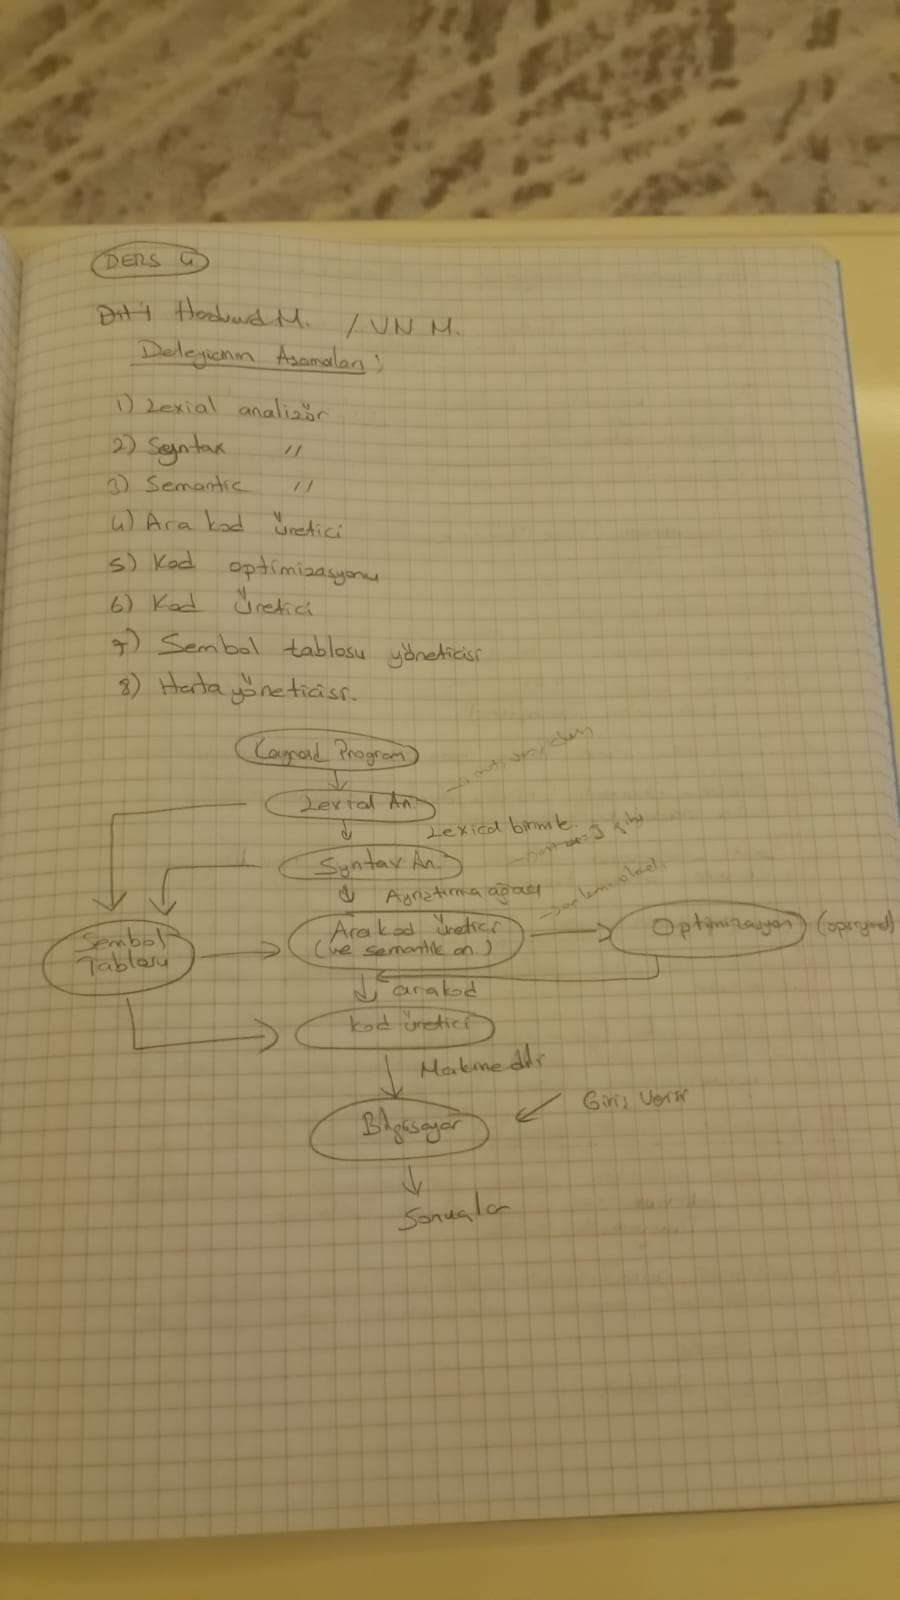 DERS 4
Harward M. / VN M.
Derleyicinin Aşamaları:
1) Lexial analizör
2) Syntax "
3) Semantic "
4) Ara kod üretici
5) Kod optimizasyonu
6) Kod üretici
7) Sembol tablosu yöneticisi
8) Hata yöneticisi.
Kaynak Program
Lexial An.
Lexical birimle.
Syntax An.
Ayrıştırma ağacı
Sembol Tablosu
Ara kod üretici
(ve semantik an.)
Optimizasyon (opsiyonel)
ara kod
kod üretici
Makine dili
Bilgisayar
Giriş Verisi
Sonuçlar